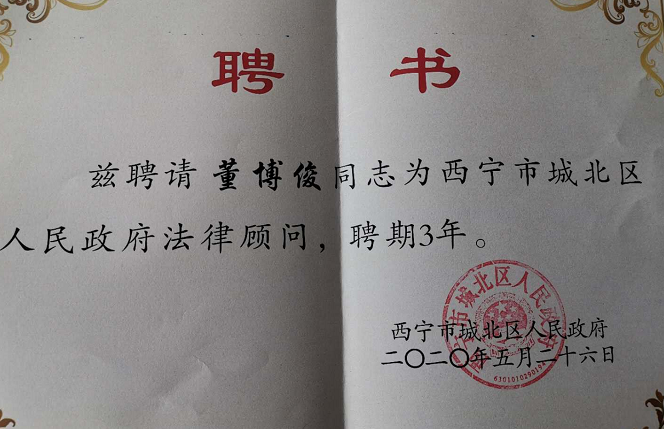 聘 书
兹聘请 董博俊同志为西宁市城北区
人民政府法律顾问，聘期3年。
西宁市城北区人民政府
二〇二〇年五月二十六日
西宁市城北区人民政府